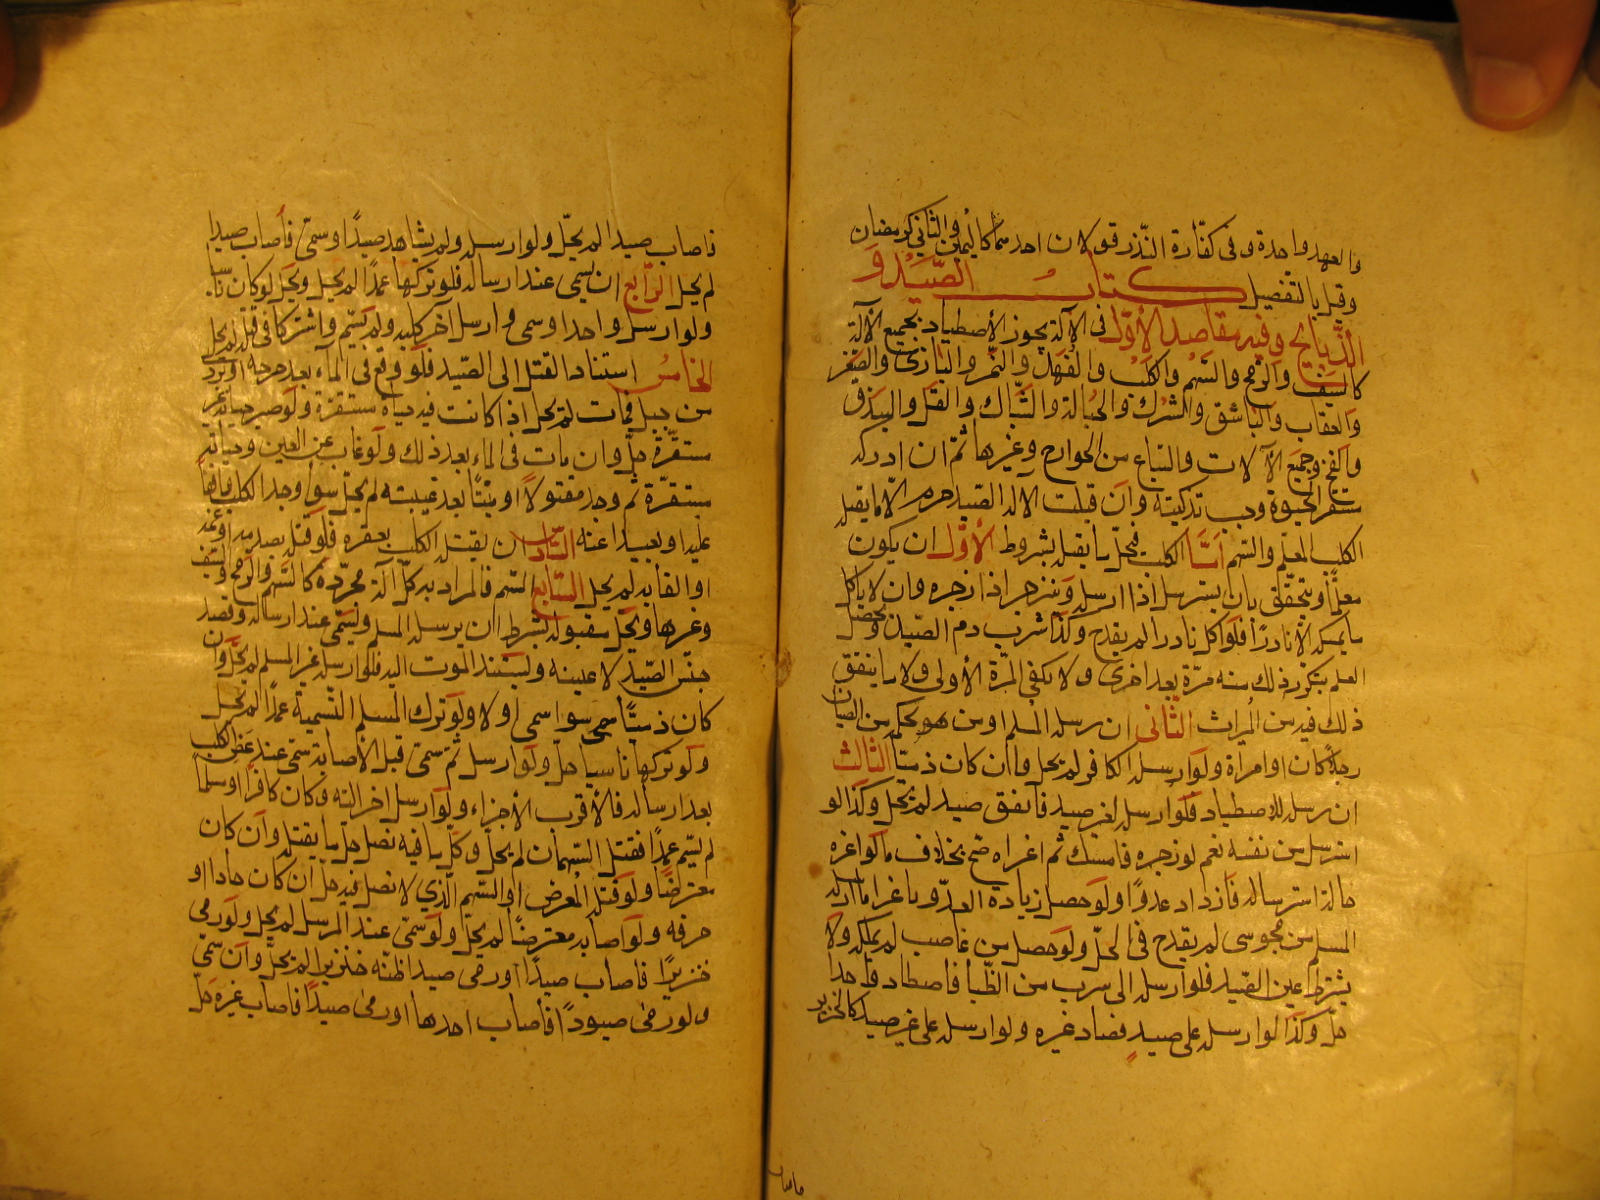 والعهد واحدة وفى كفّارة النّذر قولان احدهما كاليمين والثاني كرمضان
وقيل بالتفصيل كتاب الصّيد و
الذّبايح وفيه مقاصد الأوّل فى الآلة يجوز الأصطياد بجميع الآلة
كالسيف والرّمح والسّهم والكلب والفهد والنّمر والبازى والصّقر
والعقاب والباشق والشرك والحبالة والشّباك والبندق
والفخ وجميع الآلات والسّباع من الجوارح وغيرها ثم ان ادركه
مستقر الحيوة وجب تذكيته وان قتلت الآلة الصّيد حرم الّا ما يقتله
الكلب المعلّم والسّهم امّا الكلب فيحلّ ما يقتله بشروط الأوّل ان يكون
معلّمًا ويتحقّق بان يسترسل اذا ارسله وينزجر اذا زجره وان لا يأكل
ما يمسكه الا نادرًا فلو اكل نادرا لم يقدح وكذا شرب دم الصّيد ويحصل
العلم بتكرّر ذلك منه مرّة بعد اخرى ولا يكفى المرّة الأولى ولا ما يتفق
ذلك فيه من المرات الثّانى ان يرسله المسلم او من هو بحكمه من الصبيان
رجلا كان او امراة ولو ارسله الكافر لم يحل وان كان ذميّا الثالث
ان يرسله للاصطياد فلو ارسله لغير صيد فاتفق صيد لم يحل وكذا لو
استرسل من نفسه نعم لو زجره فامسك ثم اغراه صحّ بخلاف ما لو اغراه
حالة استرساله فازداد عدوًا ولو حصل زيادة العدو باغراء ما ارسله
المسلم من مجوسى لم يقدح فى الحلّ ولو حصل من غاصب لم يملكه ولا
يشترط عين الصّيد فلو ارسله الى سرب من الظّبأ فاصطاد واحدا
حلّ وكذا لو ارسله على صيد فصاد غيره ولو ارسله على غير صيد كالخنزير
فاصاب صيدا لم يحلّ ولو ارسله ولم يشاهد صيدًا وسمّى فأصاب صيدا
لم يحل الرّابع ان يسمى عند ارساله فلو تركها عمدًا لم يحل ويحل لو كان ناسيا
ولو ارسل واحدا وسمى وارسل آخر كلبه ولم يسمّ واشتركا فى قتله لم يحل
الخامس استناد القتل الى الصّيد فلو وقع فى الماء بعد جرحه او تردّى
من جبل فمات لم يحل اذا كانت فيه حياة مستقرّة ولو صير حياته غير
مستقرّة حلّ وان مات فى الماء بعد ذلك ولو غاب عن العين وحياته
مستقرّة ثم وجد مقتولًا او ميتًا بعد غيبته لم يحلّ سواء وجد الكلب واقفا
عليه او بعيدا عنه السّادس ان يقتله الكلب بعقره فلو قتله بصدمه او غمه
او القا به لم يحل السّابع السّهم فالمراد به كلّ آلة محرّدة كالسّهم والرّمح والسّيف
وغيرها ويحل مقتوله بشرط ان يرسله المسلم ويسمّى عند ارساله وقصد
جنس الصّيد لا عينه وليستند الموت اليه فلو ارسله غير المسلم لم يحل وان
كان ذميّا سمى سوا سمى او لا ولو ترك المسلم التّسمية عمدًا لم يحل
ولو تركها ناسيا حلّ ولو ارسل ثم سمى قبل الأصابة سمى عند عض الكلب
بعد ارساله فالأقرب الأجزاء ولو ارسل اخر الته وكان كافرا او مسلما
لم يسّم عمدًا فقتله السّهمان لم يحلّ وكل ما فيه نصل حل ما يقتله وان كان
معترضًا ولو قتل المعرض او السّهم الّذي لا نصل فيه حل ان كان حادا او
خرقه ولو اصابه معترضًا لم يحل ولو سمّى عند المرسل لم يحل ولو رمى
خنزيرًا فاصاب صيدًا او رمى صيدا ظنّه خنزيرا لم يحلّ وان سمّى
ولو رمى صيودًا فأصاب احدها او رمى صيدًا فاصاب غيره حلّ
فاصاب